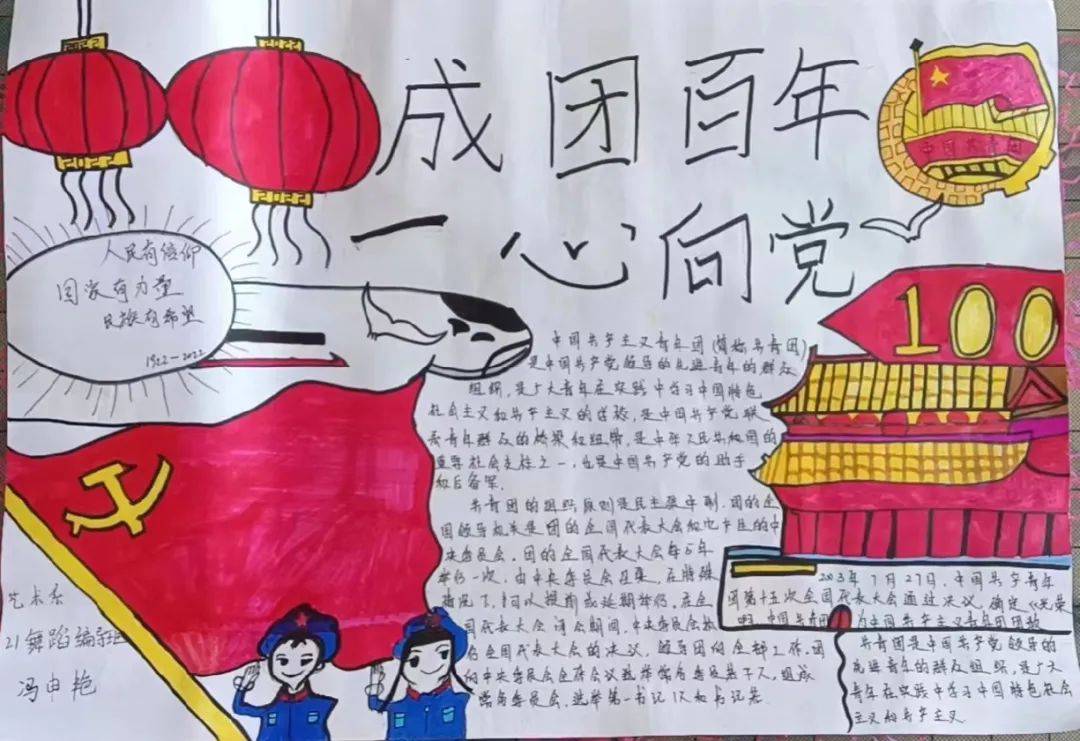 2022
2022
成团百年
一心向党
中国共青团
人民有信仰
国家有力量
民族有希望
1922—2022
100
中国共产主义青年团(简称共青团)
是中国共产党领导的先进青年的群众
组织,是广大青年在实践中学习中国特色
社会主义和共产主义的学校,是中国共产党联
系青年群众的桥梁和纽带,是中华人民共和国的
重要社会支柱之一,也是中国共产党的助手
和后备军.
共青团的组织原则是民主集中制.团的全
国领导机关是团的全国代表大会和它产生的中
央委员会.团的全国代表大会每5年
举行一次,由中央委员会召集.在特殊
情况下,可以提前或延期举行.在全
国代表大会闭会期间,中央委员会执
行全国代表大会的决议,领导团的全部工作.团
的中央委员会全体会议选举常务委员若干人,组成
常务委员会,选举第一书记1人和书记若
2003年7月27日,中国共产青年
团第十五次全国代表大会通过决议,确定《光荣
啊,中国共青团 为中国共产主义青年团团歌
共青团是中国共产党领导的
先进青年的群众组织,是广大
青年在实践中学习中国特色社会
主义和共产主义
艺术系
21舞蹈编班
冯申艳